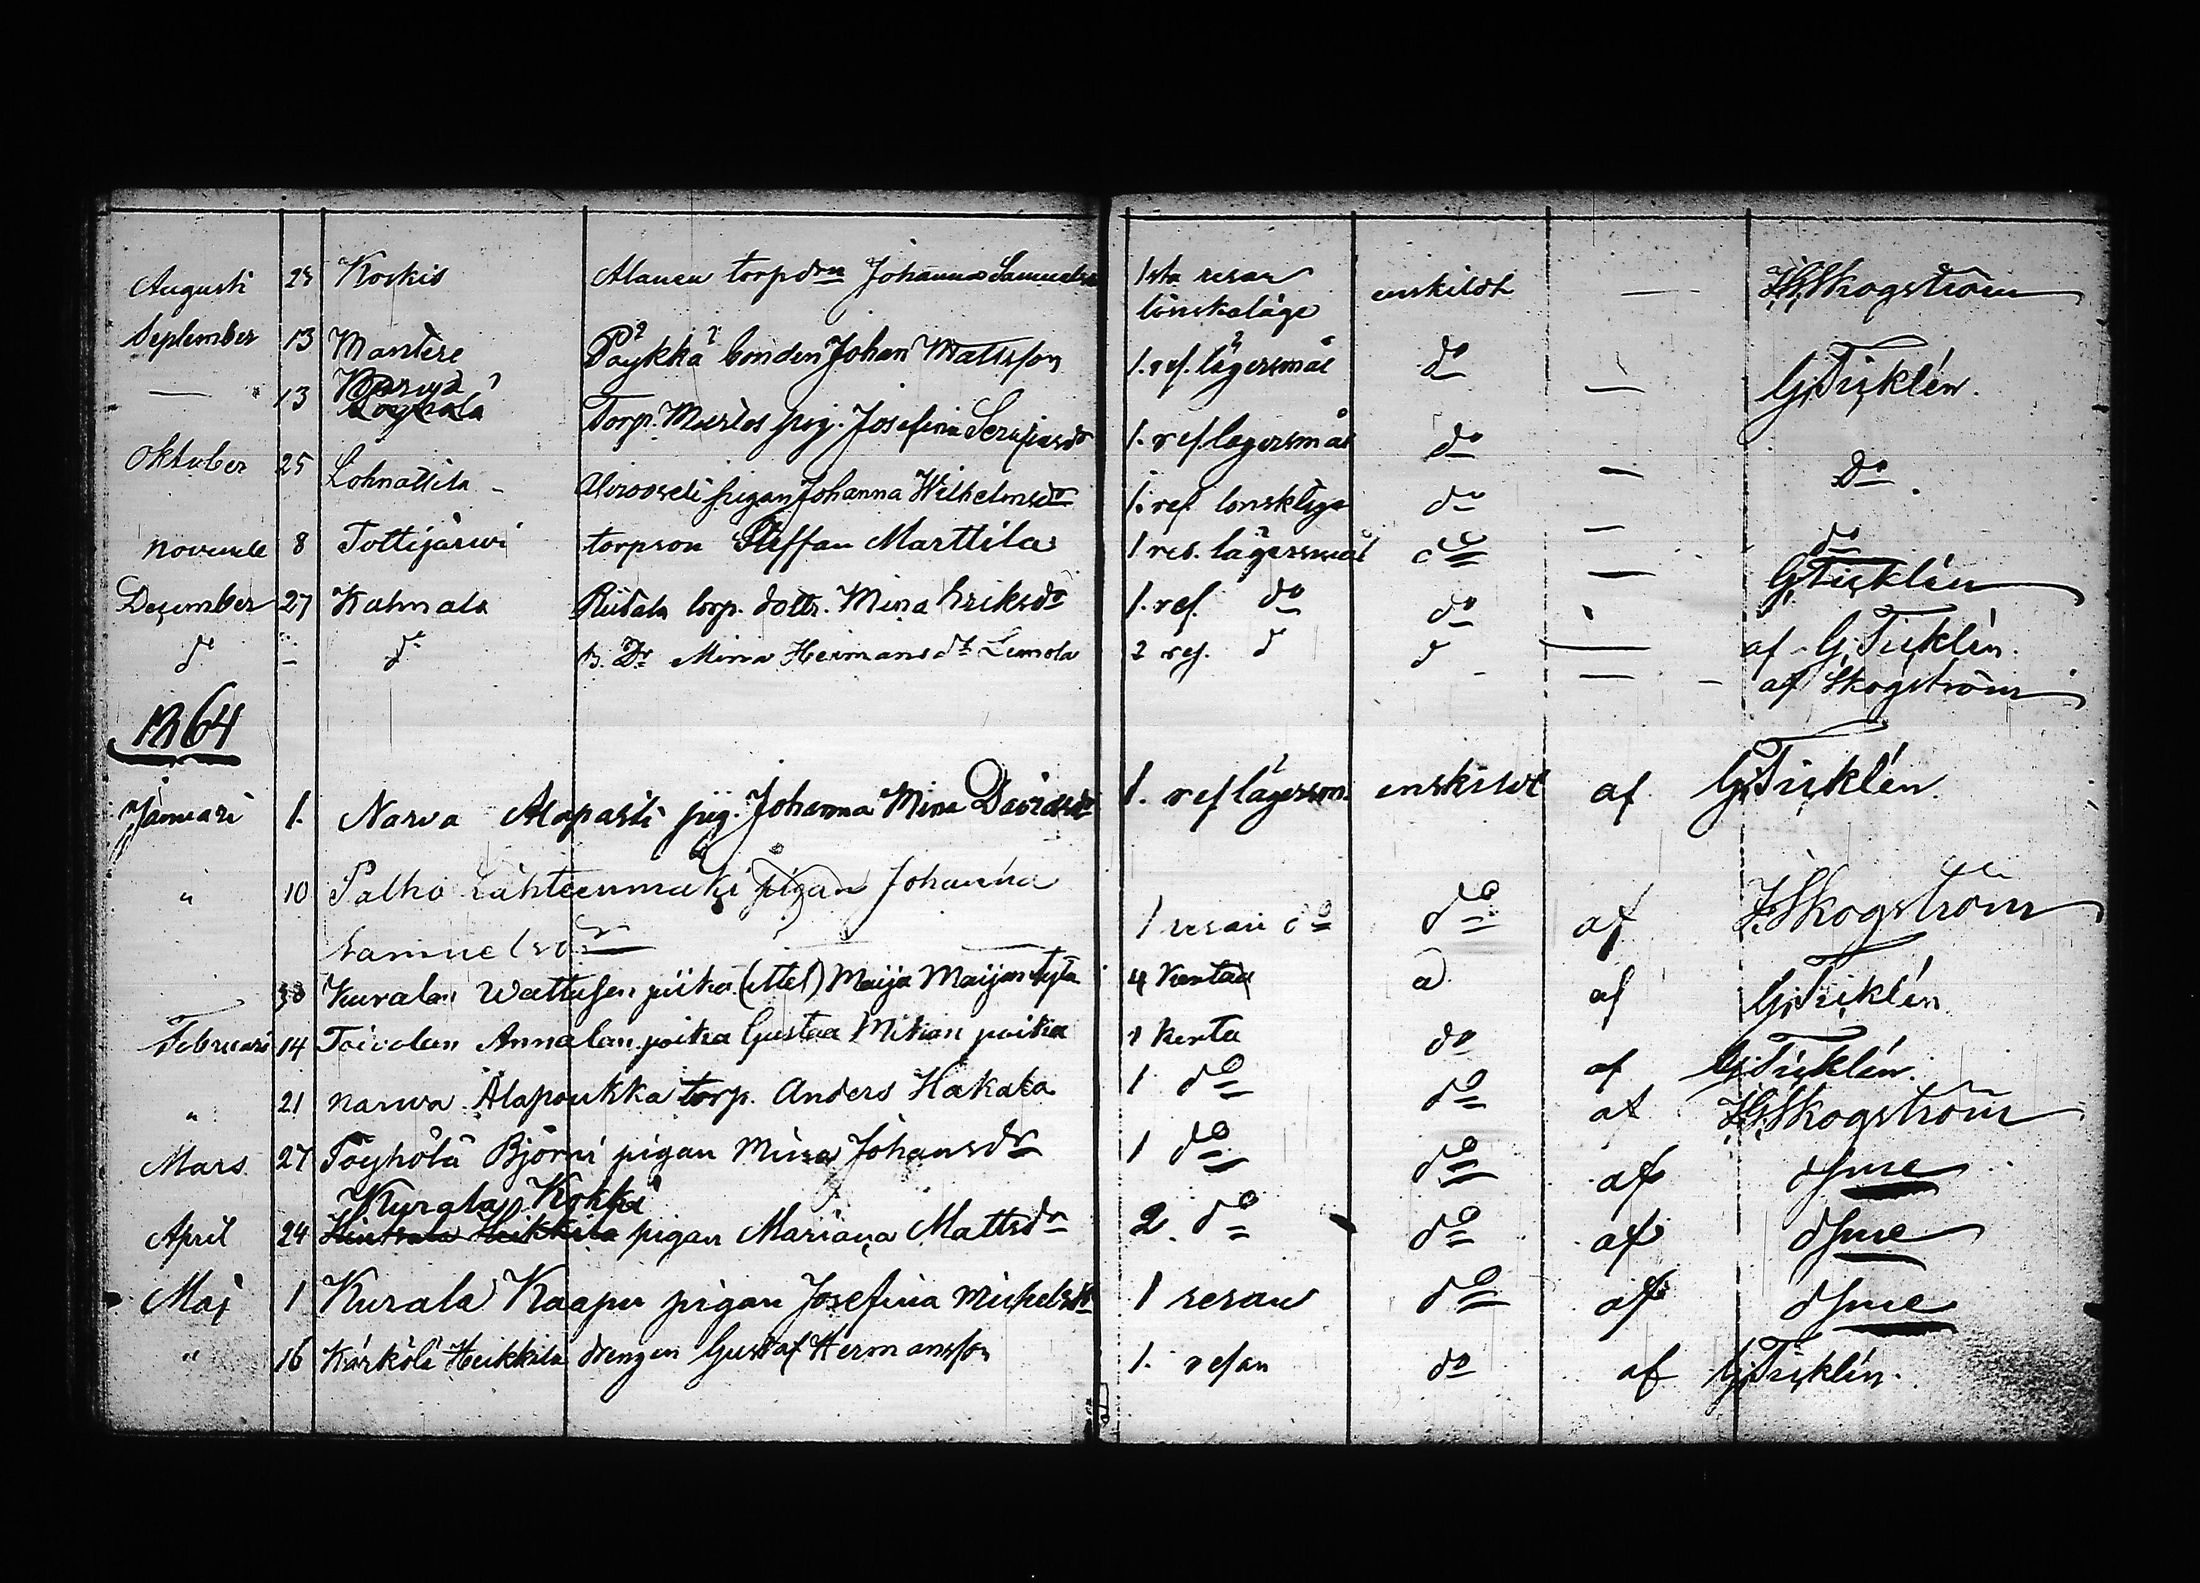 Augusti 28 Koskis Alanen torp drn Johanna Samuelsdr 1sta resan lönskaläge enskildt — H.G.Skogström
September 13 Mantere Päykkä bonden Johan Mattsson 1. res. lägersmål do — G.Ticklén.
— " 13 Torp. pig. Josefina Serafiasdr 1. res lägersmål do — Do
Oktober 25 Lohnattila - pigan Johanna Wilhelmsdr 1. res. lonskläge do — do
November 8 Tottijärwi torpson Steffan Marttila 1 res. lägersmål do — G.Ticklén
December 27 Kulmala Riidala torp. dottr. Mina Eriksdr 1. res. do do af G.Ticklén.
do " do Mina Hermansdr Lemola 2 res. d d — af Skogström
1864
Januari 1. Narva Alapasti pig. Johanna Mina Davidsdr 1. res lägersm. enskildt af G.Ticklén.
" 10 Palho Lähteenmäki pigan Johanna
Samuelsdr 1 resan do do af H.G.Skogström
30 Kuralan Wattusen piika (ittel) Maija Maijan tytä 4 kertaa d af G.Ticklén
Februari 14 Toivolan Annalan poika Gustaa Mikon poika 1 kerta do af G.Ticklén.
" 21 Narwa Alapoukka torp. Anders Hakala 1 do do af H.G.Skogström
Mars 27 Töyhölä Björni pigan Mina Johansdr 1 do do af dsme
Kurala Kokki
April 24 Hinsala Heikkila pigan Mariana Mattsdr 2. do do af dsme
Maj 1 Kurala Kaapu pigan Josefina Michelsdr 1 resan do af dsme
" 16 Kärkölä Heikkila drengen Gustaf Hermansson 1. resan do af G.Ticklén.